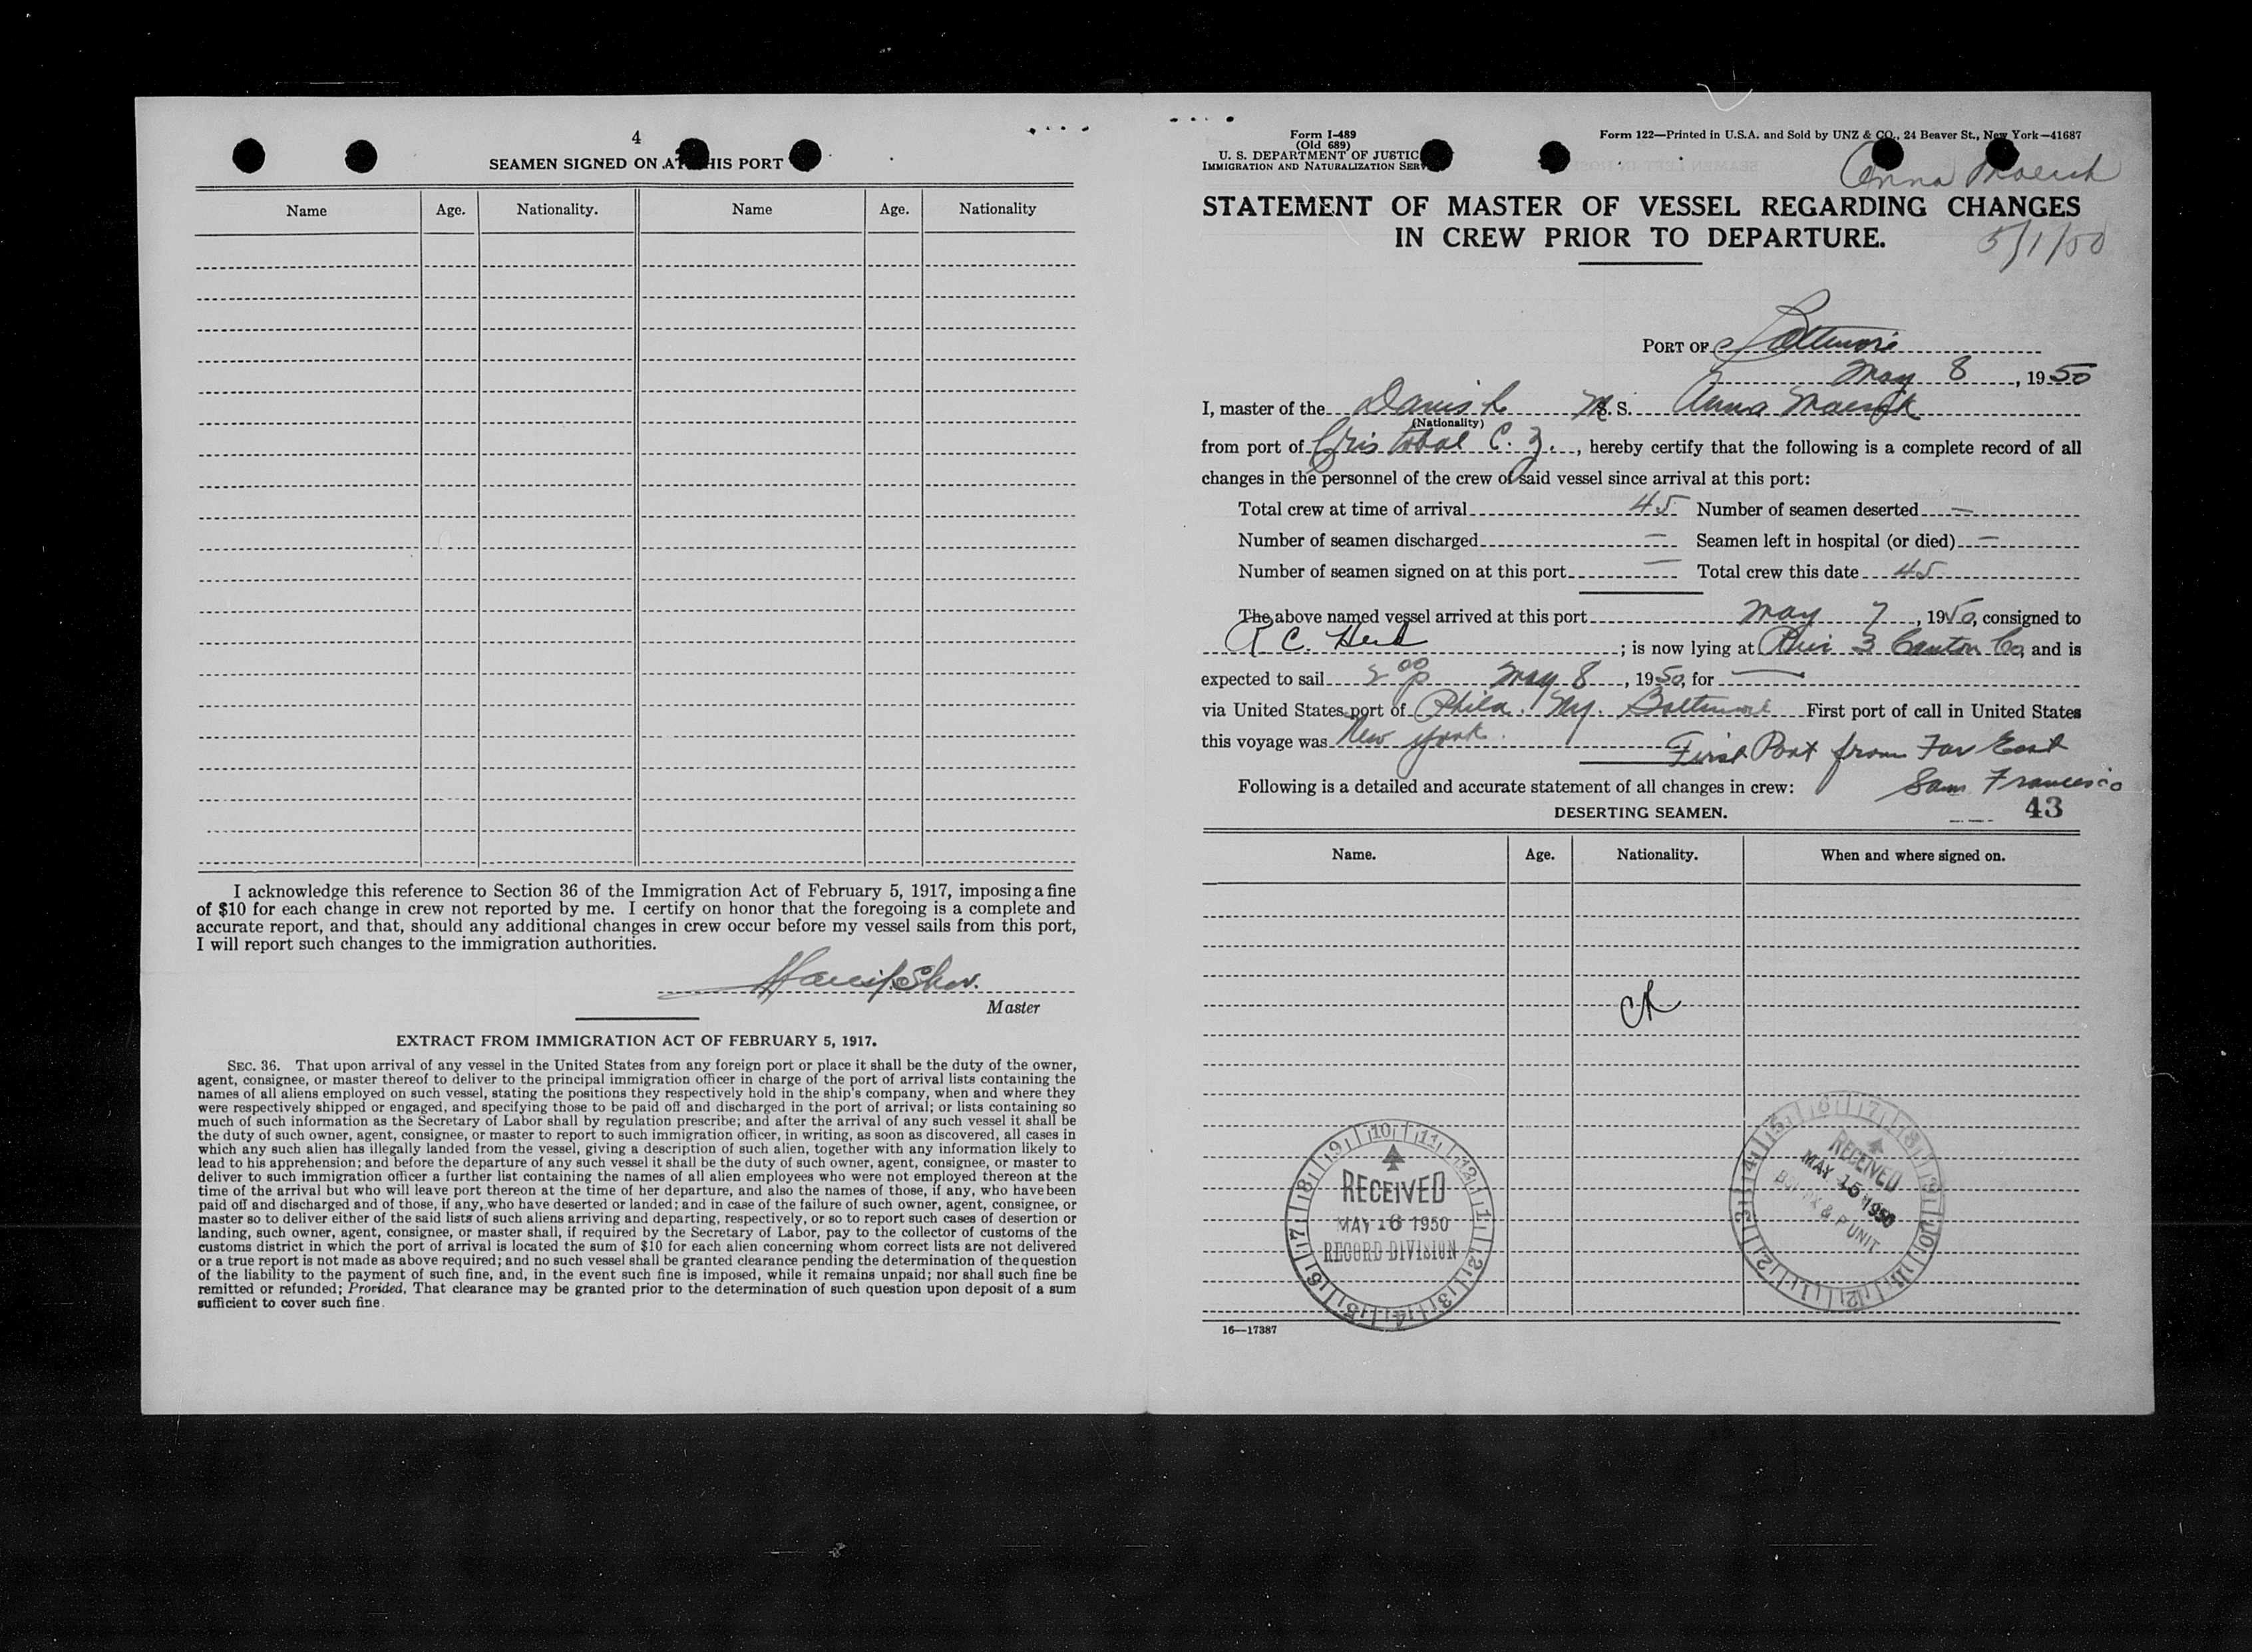 4
SEAMEN SIGNED ON AT THIS PORT
Name Age. Nationality. Name Age. Nationality
I acknowledge this reference to Section 36 of the Immigration Act of February 5, 1917, imposing a fine
of $10 for each change in crew not reported by me. I certify on honor that the foregoing is a complete and
accurate report, and that, should any additional changes in crew occur before my vessel sails from this port,
I will report such changes to the immigration authorities.
Master
EXTRACT FROM IMMIGRATION ACT OF FEBRUARY 5, 1917.
SEC. 36. That upon arrival of any vessel in the United States from any foreign port or place it shall be the duty of the owner,
agent, consignee, or master thereof to deliver to the principal immigration officer in charge of the port of arrival lists containing the
names of all aliens employed on such vessel, stating the positions they respectively hold in the ship's company, when and where they
were respectively shipped or engaged, and specifying those to be paid off and discharged in the port of arrival; or lists containing so
much of such information as the Secretary of Labor shall by regulation prescribe; and after the arrival of any such vessel it shall be
the duty of such owner, agent, consignee, or master to report to such immigration officer, in writing, as soon as discovered, all cases in
which any such alien has illegally landed from the vessel, giving a description of such alien, together with any information likely to
lead to his apprehension; and before the departure of any such vessel it shall be the duty of such owner, agent, consignee, or master to
deliver to such immigration officer a further list containing the names of all alien employees who were not employed thereon at the
time of the arrival but who will leave port thereon at the time of her departure, and also the names of those, if any, who have been
paid off and discharged and of those, if any, who have deserted or landed; and in case of the failure of such owner, agent, consignee, or
master so to deliver either of the said lists of such aliens arriving and departing, respectively, or so to report such cases of desertion or
landing, such owner, agent, consignee, or master shall, if required by the Secretary of Labor, pay to the collector of customs of the
customs district in which the port of arrival is located the sum of $10 for each alien concerning whom correct lists are not delivered
or a true report is not made as above required; and no such vessel shall be granted clearance pending the determination of the question
of the liability to the payment of such fine, and, in the event such fine is imposed, while it remains unpaid; nor shall such fine be
remitted or refunded; Provided, That clearance may be granted prior to the determination of such question upon deposit of a sum
sufficient to cover such fine.
Form I-489
(Old 689)
U. S. DEPARTMENT OF JUSTIC
IMMIGRATION AND NATURALIZATION SERV
Form 122—Printed in U.S.A. and Sold by UNZ & CO., 24 Beaver St., New York—41687
Anna Maersk
STATEMENT OF MASTER OF VESSEL REGARDING CHANGES
IN CREW PRIOR TO DEPARTURE.
5/1/50
PORT OF Baltimore
May 8, 1950
I, master of the Danish M. S. Anna Maersk
(Nationality)
from port of Cristobal C. Z., hereby certify that the following is a complete record of all
changes in the personnel of the crew of said vessel since arrival at this port:
Total crew at time of arrival 45 Number of seamen deserted —
Number of seamen discharged — Seamen left in hospital (or died) —
Number of seamen signed on at this port — Total crew this date 45
The above named vessel arrived at this port May 7, 1950, consigned to
R C. ; is now lying at Pier 3 Canton Co, and is
expected to sail 2 00 p May 8, 1950, for —
via United States port of Phila. Ny. Baltimore First port of call in United States
this voyage was New York.
First Port from Far East
San Francisco
Following is a detailed and accurate statement of all changes in crew:
43
DESERTING SEAMEN.
Name. Age. Nationality. When and where signed on.
RECEIVED
MAY 16 1950
RECORD DIVISION
RECEIVED
MAY 15 1950
16—17387